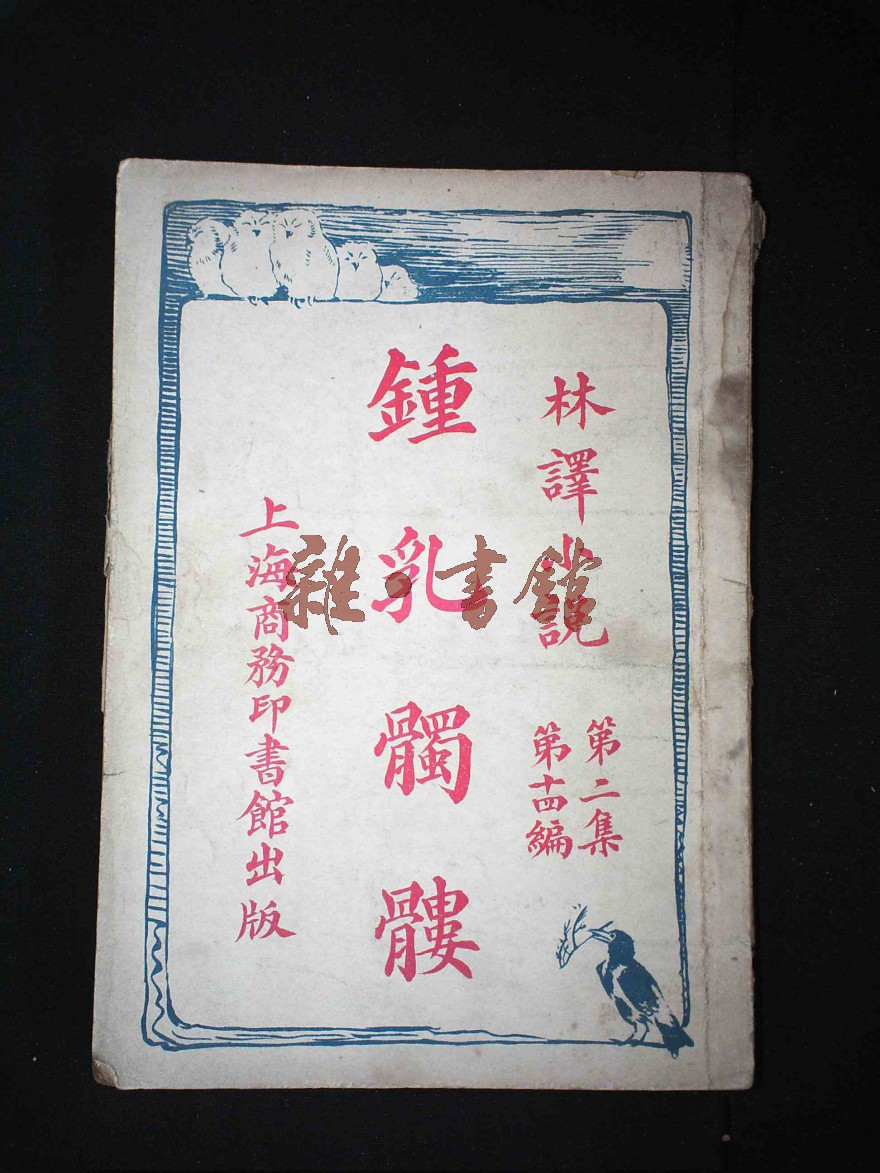 林譯小說
第二集
第十四編
鍾乳髑髏
上海商務印書館出版
雜·書館